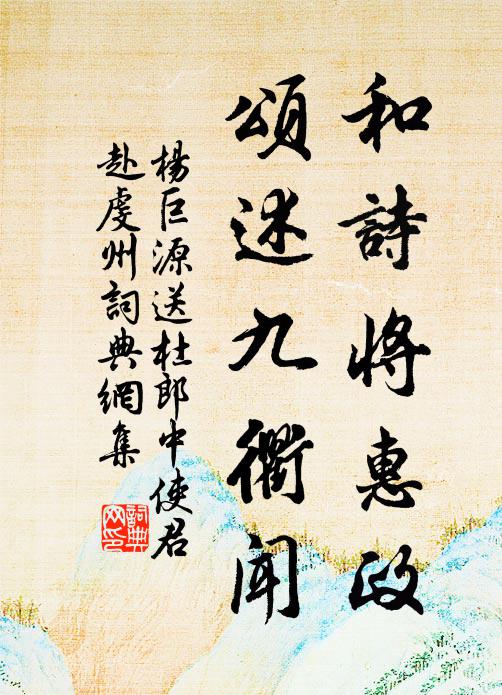 和詩將惠政
頌述九衢聞
楊巨源送杜郎中使君
赴虔州詞典網集
詞典
网印